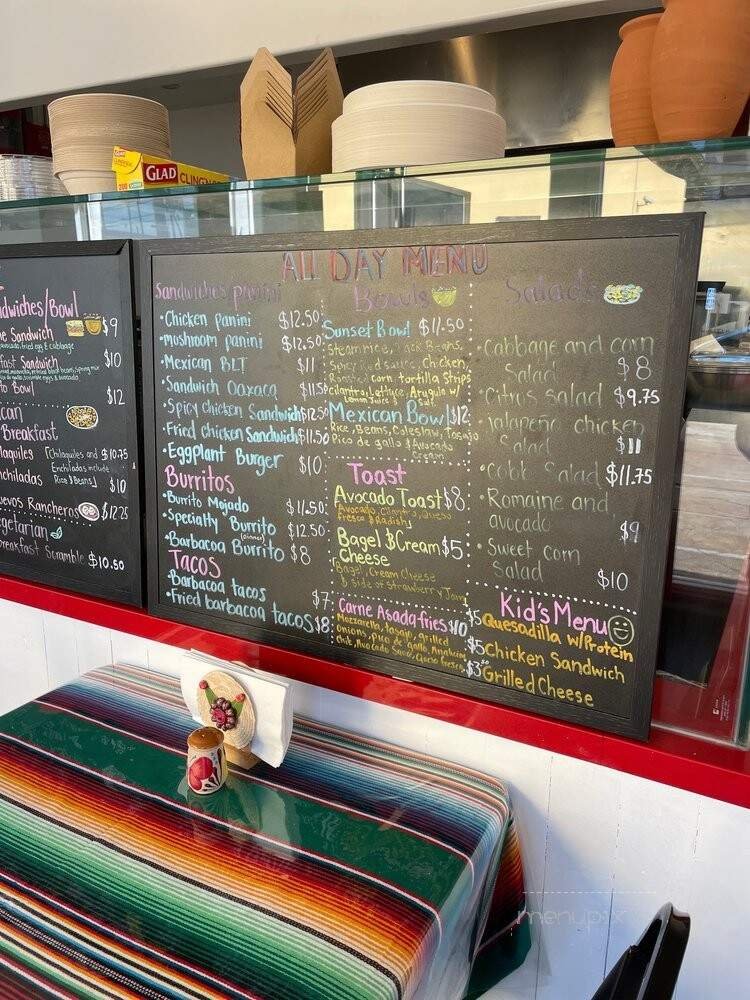 GLAD
CLINGWRAP
Sandwiches/Bowl
Sandwich $9
fried egg & cabbage
Sandwich $10
Bowl
$12
Breakfast
[Chilaquiles and $10.75
Enchiladas include
Rice & Beans] $10
Huevos Rancheros $12.25
Vegetarian
Breakfast Scramble $10.50
ALL DAY MENU
Sandwiches/panini
•Chicken panini $12.50
•mushroom panini $12.50
•Mexican BLT $11
•Sandwich Oaxaca $11.50
•Spicy chicken Sandwich $12.50
•Fried chicken Sandwich $11.50
•Eggplant Burger $10
Burritos
•Burrito Mojado $11.50
•Specialty Burrito $12.50
(dinner)
•Barbacoa Burrito $8
Tacos
•Barbacoa tacos $7
•Fried barbacoa tacos $8
Bowls
Sunset Bowl $11.50
Steam rice, Black Beans,
Spicy Red sauce, Chicken,
Roasted corn, tortilla strips
cilantro, Lettuce, Arugula w/
Lemon Juice & Salt
Mexican Bowl $12
Rice, Beans, Coleslaw, Tasajo
Pico de gallo & Avocado
Cream
Toast
Avocado Toast $8
[Avocado, Cilantro, Queso
Fresco & Radish]
Bagel & Cream $5
Cheese
[Bagel, Cream Cheese
& side of strawberry Jam]
Carne Asada fries $10
Mozzarella, tasajo, grilled
Onions, pico de gallo, Anaheim
Chile, Avocado Sauce, Queso fresco
Salads
•Cabbage and corn
Salad $8
•Citrus salad $9.75
•jalapeño chicken
Salad $11
•Cobb Salad $11.75
•Romaine and
avocado $9
•Sweet corn
Salad $10
Kid's Menu
$5 Quesadilla w/Protein
$5 Chicken Sandwich
$3 Grilled Cheese
menupix